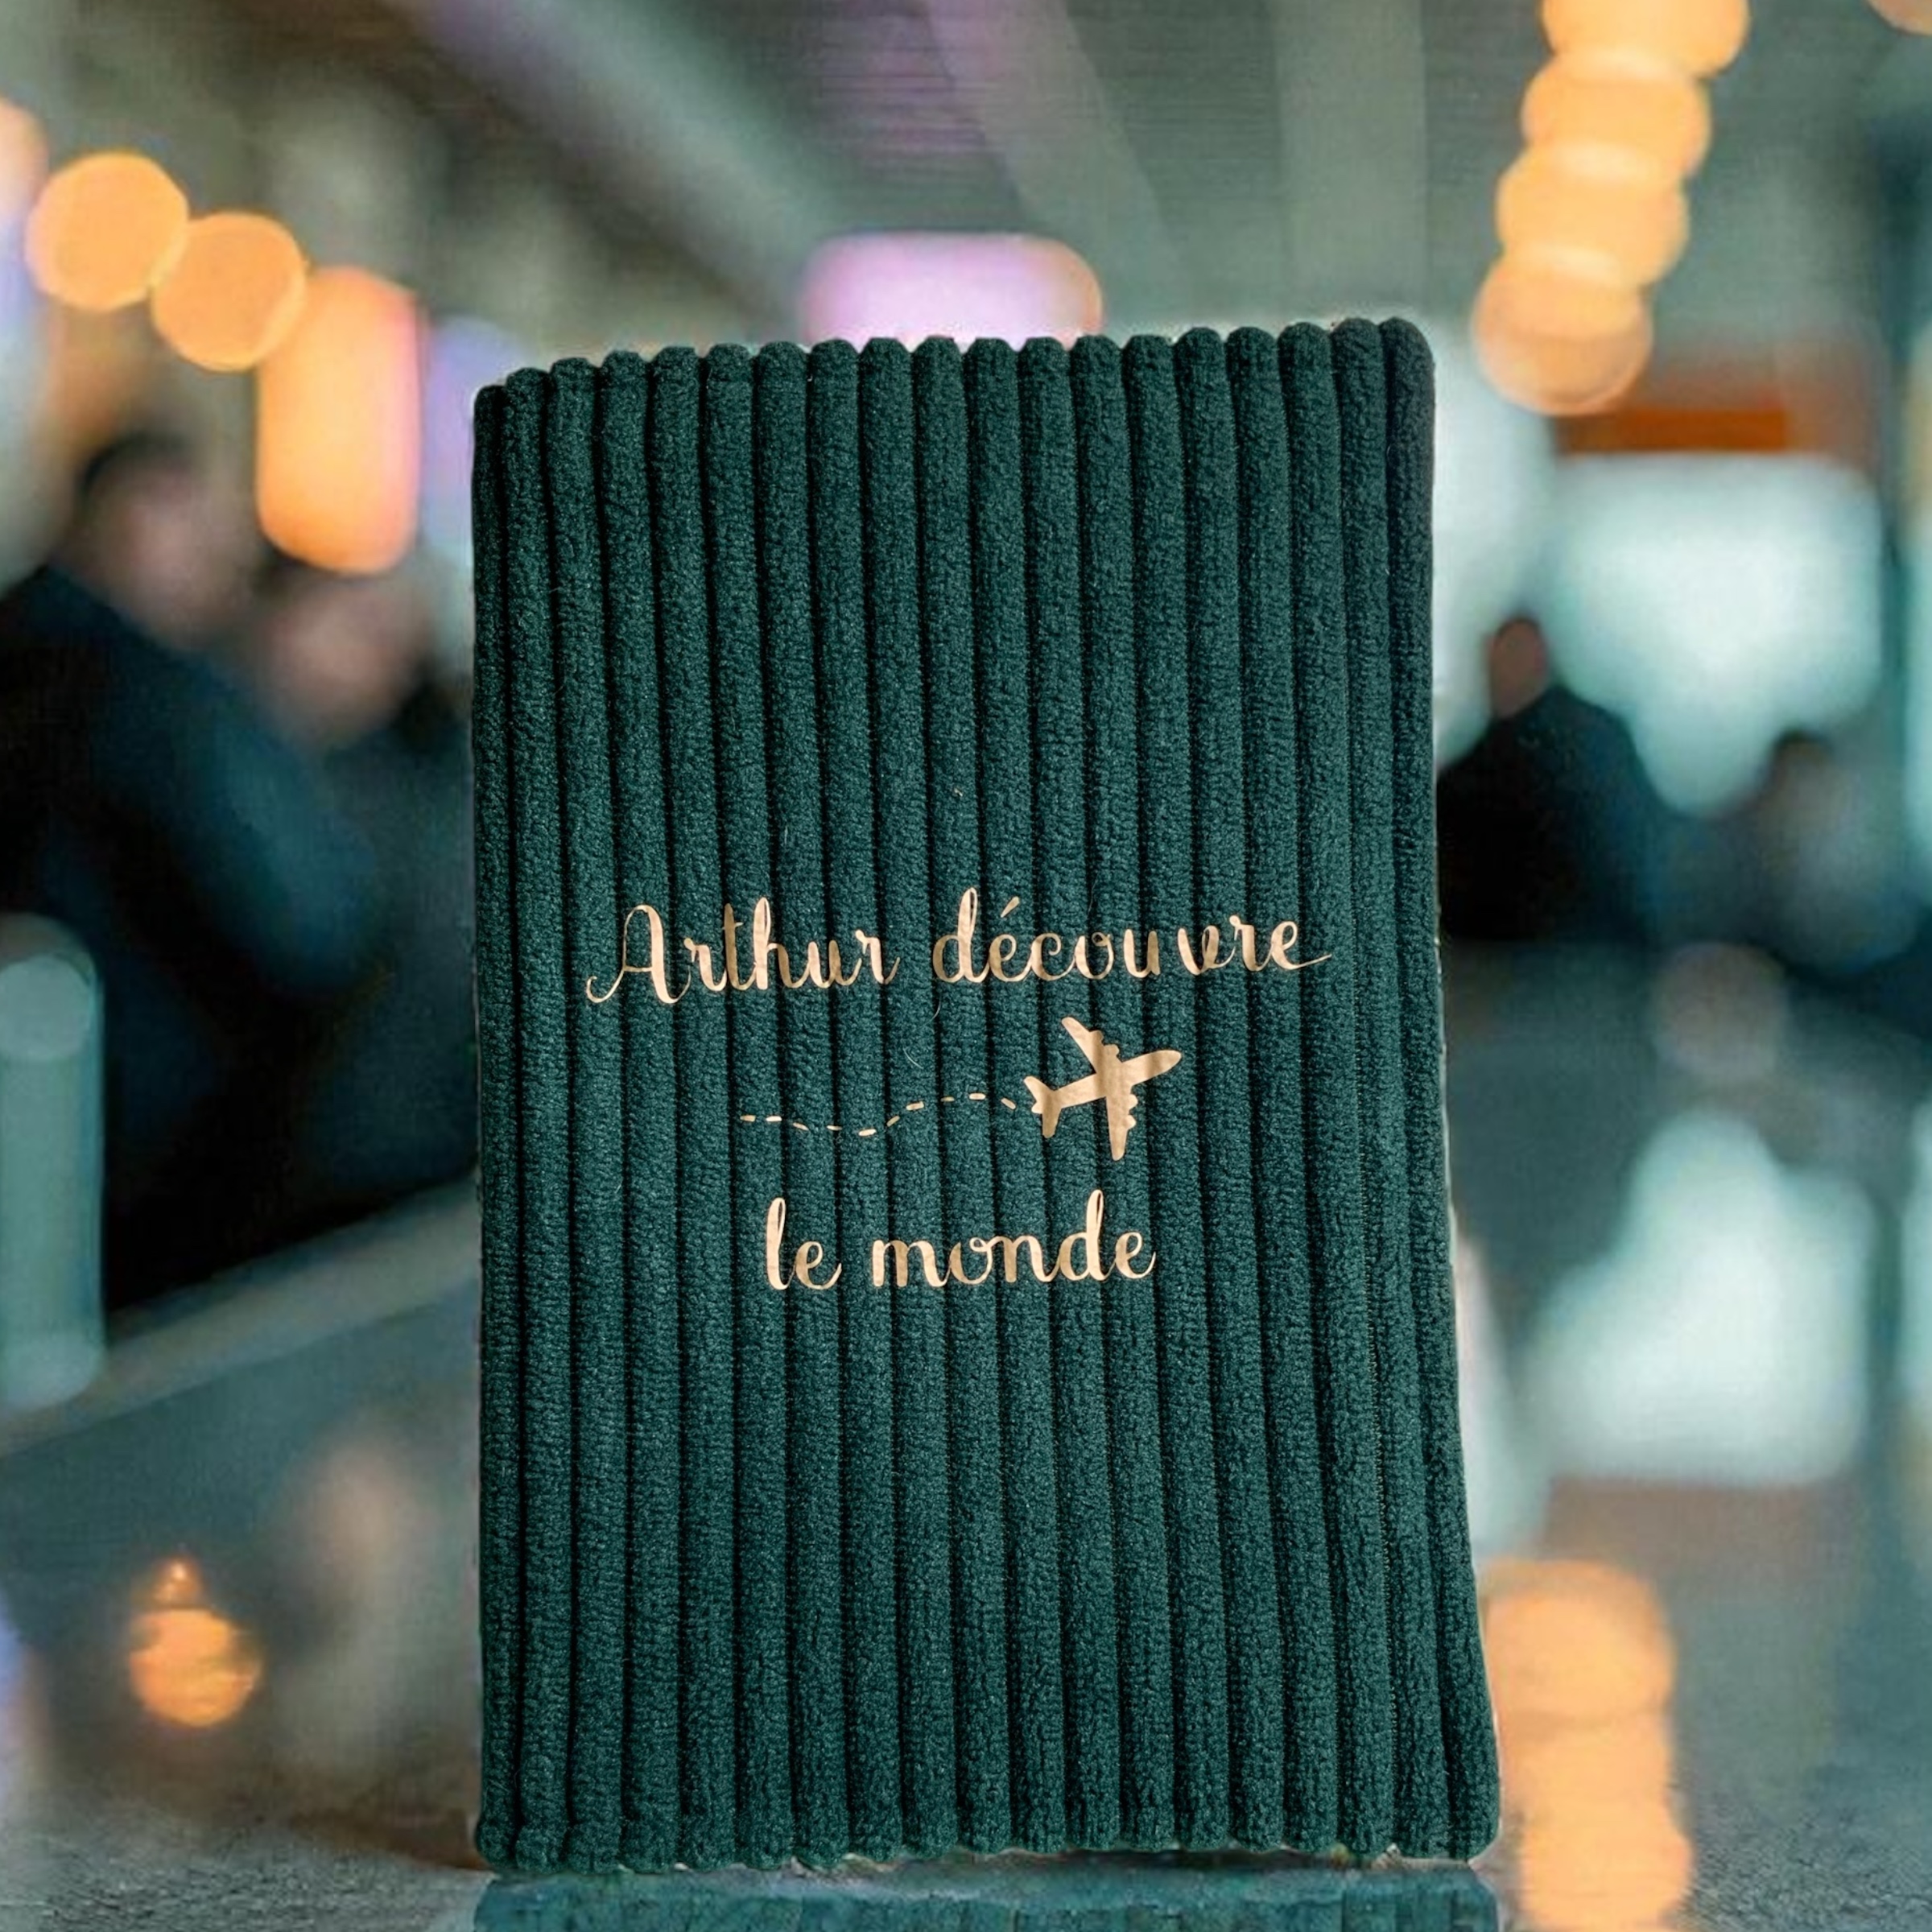 Arthur découvre
le monde